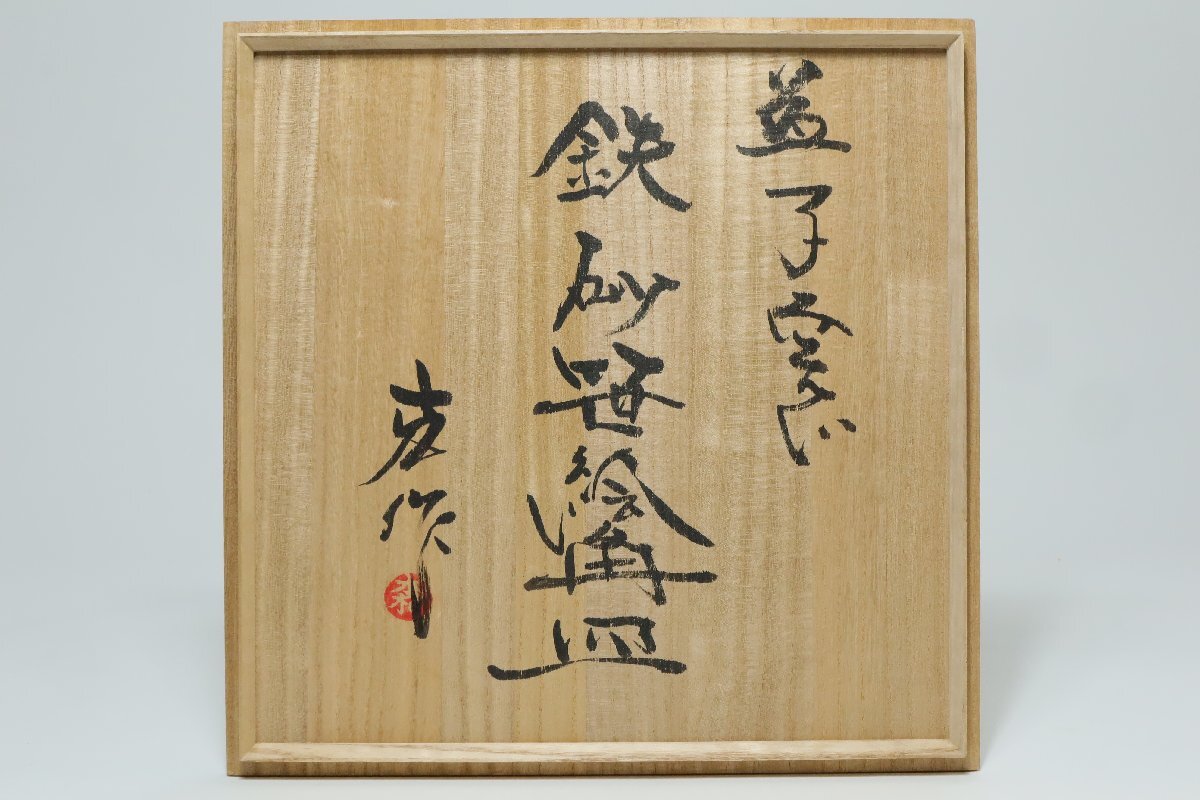 益子窯
鉄砂笹絵皿
作